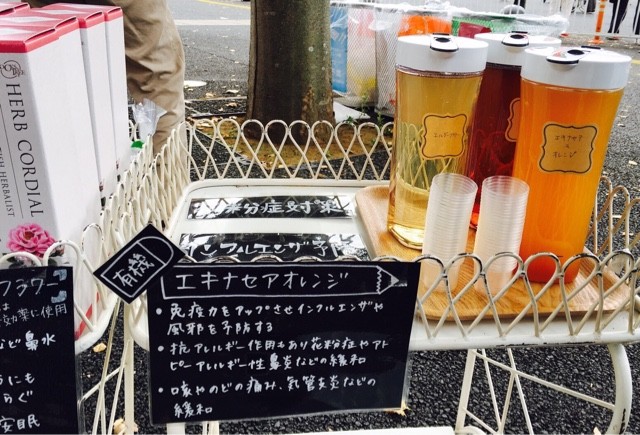 HERB CORDIAL
HERBALIST
花粉症対策
インフルエンザ予
エルダーフラワー
エキナセア
&
オレンジ
有機
エキナセアオレンジ
・免疫力をアップさせインフルエンザや
風邪を予防する
・抗アレルギー作用もあり花粉症やアト
ピーアレルギー性鼻炎などの緩和
・咳やのどの痛み、気管支炎などの
緩和
フラワー
は
効薬に使用
など鼻水
うにも
らぐ
安眠